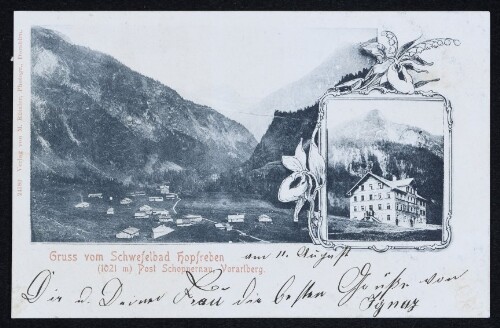 Gruss vom Schwefelbad Hopfreben
(1021 m) Post Schoppernau, Vorarlberg.
am 11. August
Dir u. Deiner Frau die besten Grüße von
Ignaz
Verlag von H. Photogr., Dornbirn.